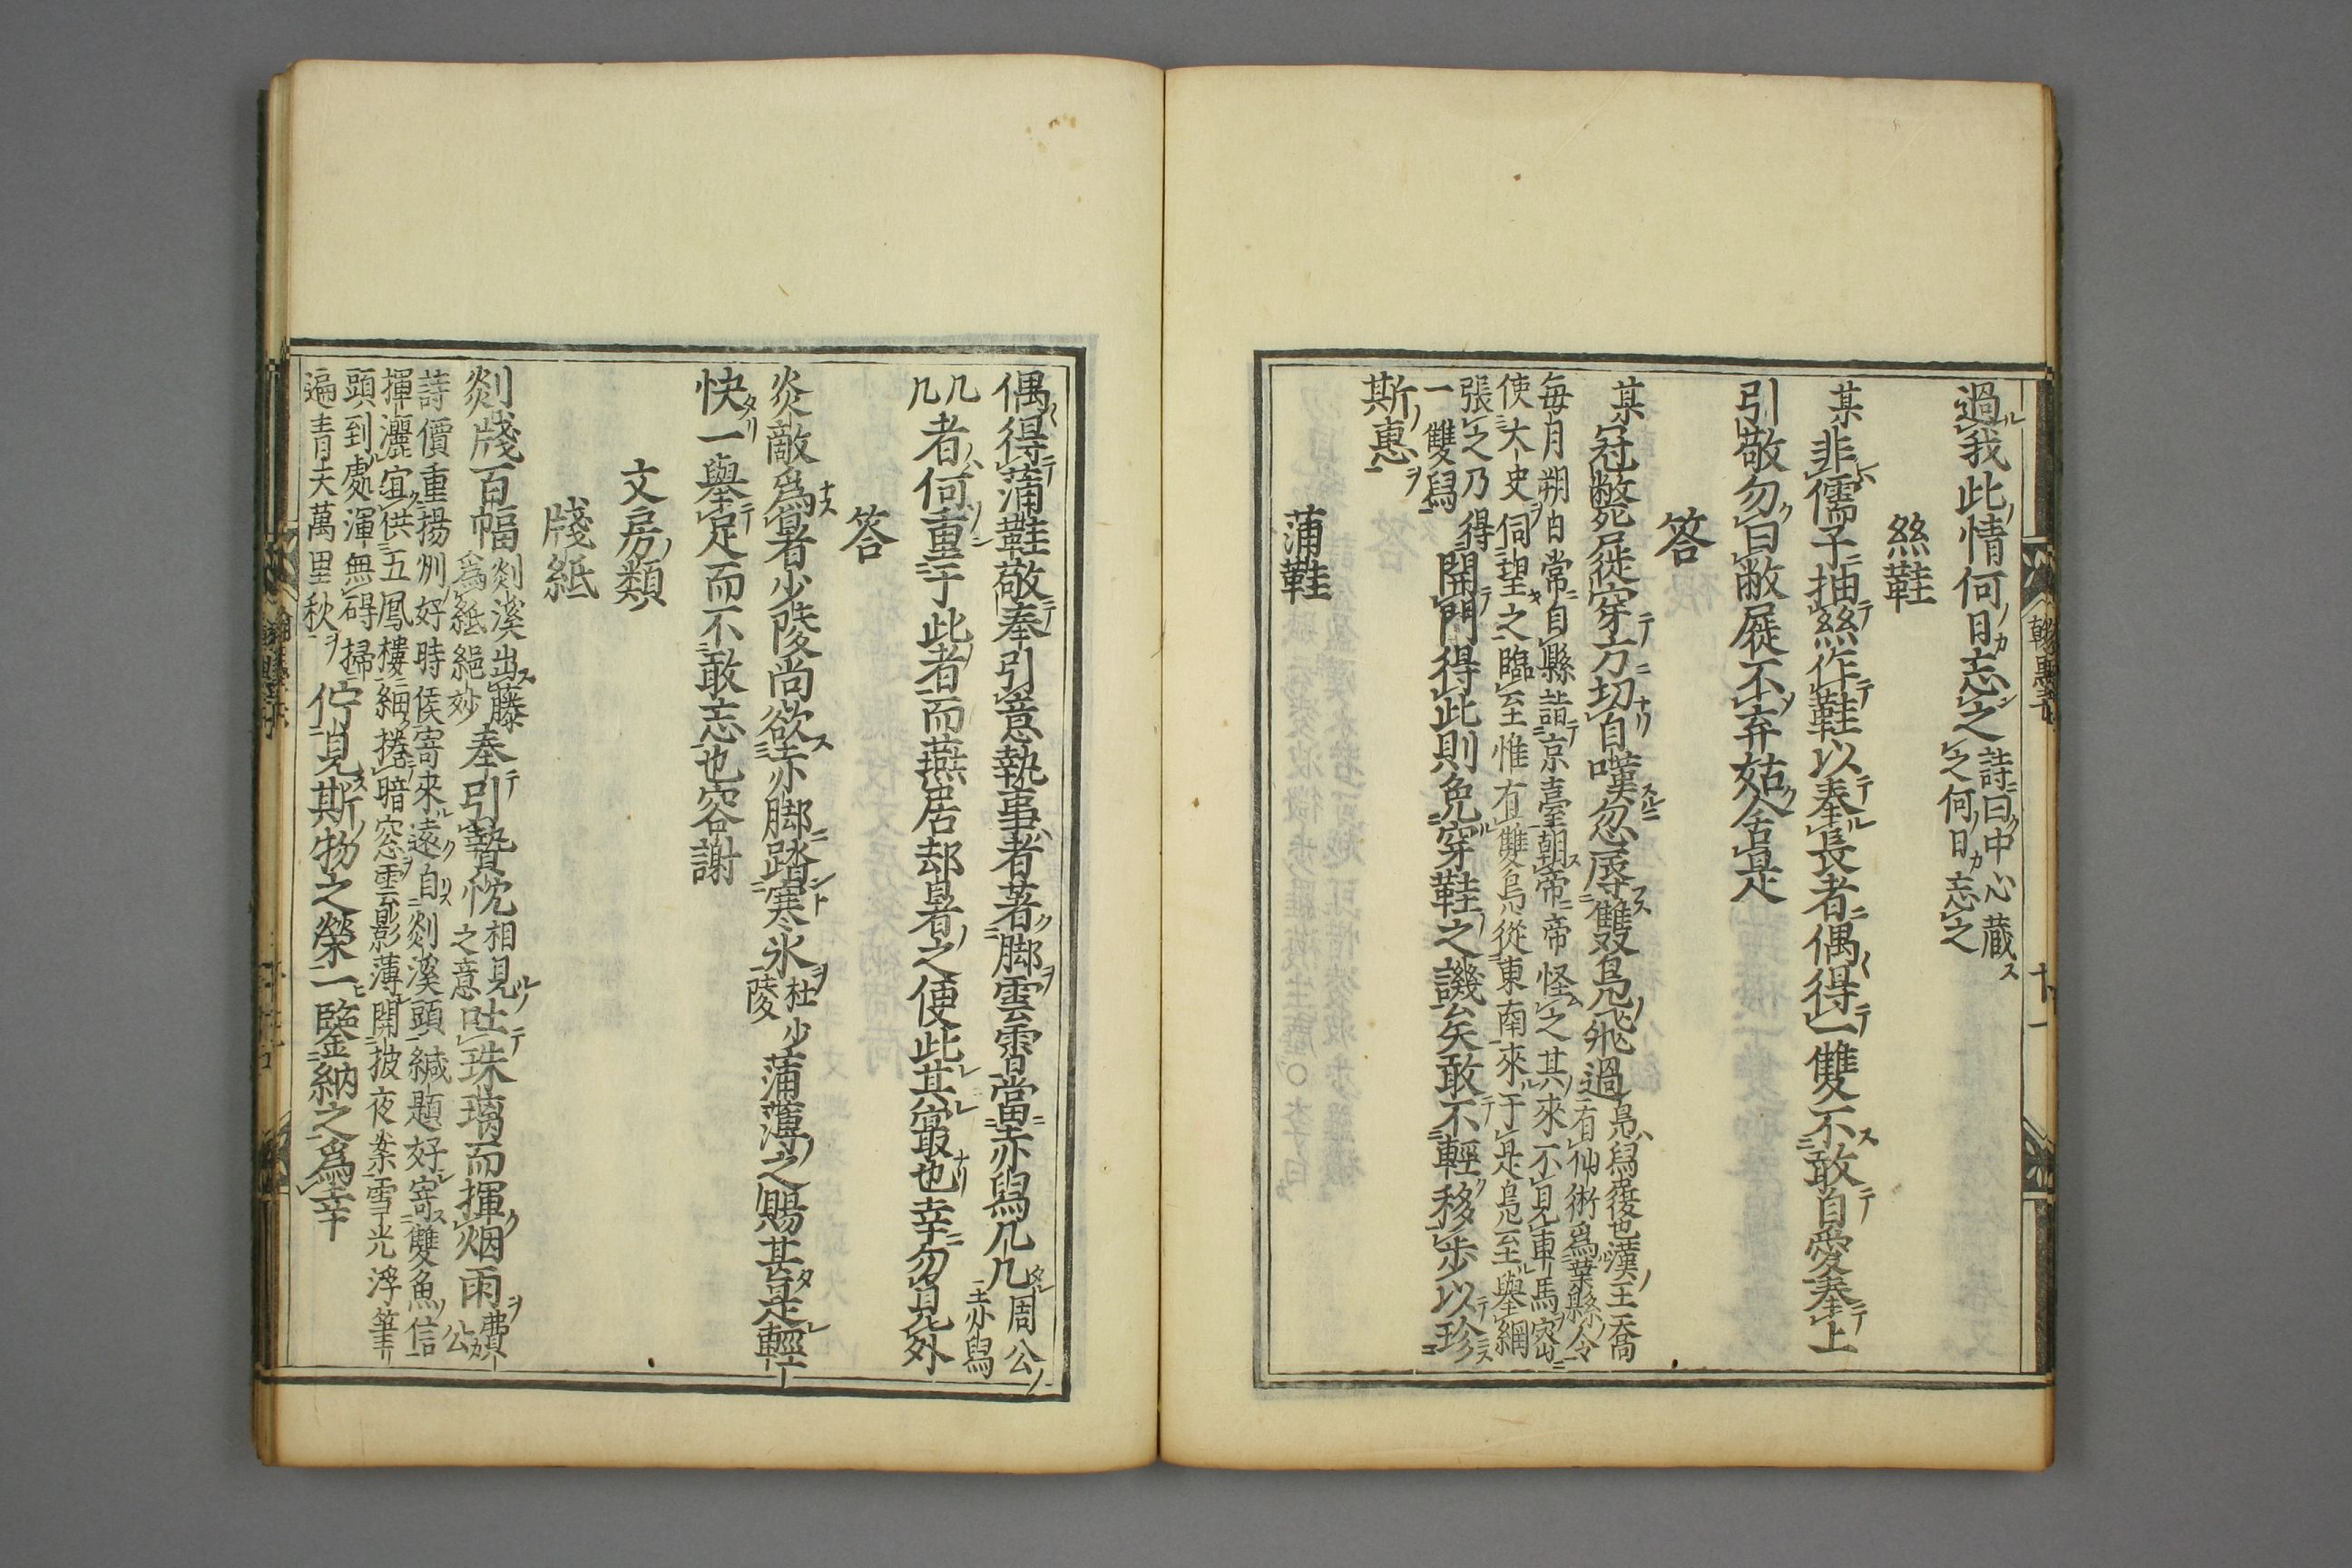 過我此情何日忘之詩曰中心藏
之何日忘之
絲鞋
某非儒子抽絲作鞋以奉長者偶得一雙不敢自愛奉上
引敬勿曰敝屣不弃姑舍是
答
某冠斃屣穿方切自嘆忽辱雙鳧飛過鳧舄履也漢王喬
有仙術爲葉縣令
每月朔日常自縣詣京臺朝帝帝怪之其來不見車馬密
使太史伺望之臨至惟有雙鳧從東南來于是鳧至舉網
張之乃得
一雙舄
開門得此則免穿鞋之譏矣敢不輕移步以珍
斯惠
蒲鞋
偶得蒲鞋敬奉引意執事者著脚雲霄當赤舄几几周公
赤舄
几几
者何重于此者而燕居却暑之便此其最也幸勿見外
答
炎敵爲暑少陵尚欲赤脚踏寒氷杜少
陵
蒲薄之賜甚是輕
快一舉足而不敢忘也容謝
文房類
牋紙
剡牋百幅剡溪出藤
爲紙絕妙
奉引贄忱相見
之意
吐珠璃而揮烟雨費
公
詩價重揚州好時侯寄來遠自剡溪頭緘題好寄雙魚信
揮灑宜供五鳳樓細捲暗窓雲影薄開披夜案雪光浮筆
頭到處渾無碍掃
遍青天萬里秋
佇見斯物之榮一鑒納之爲幸